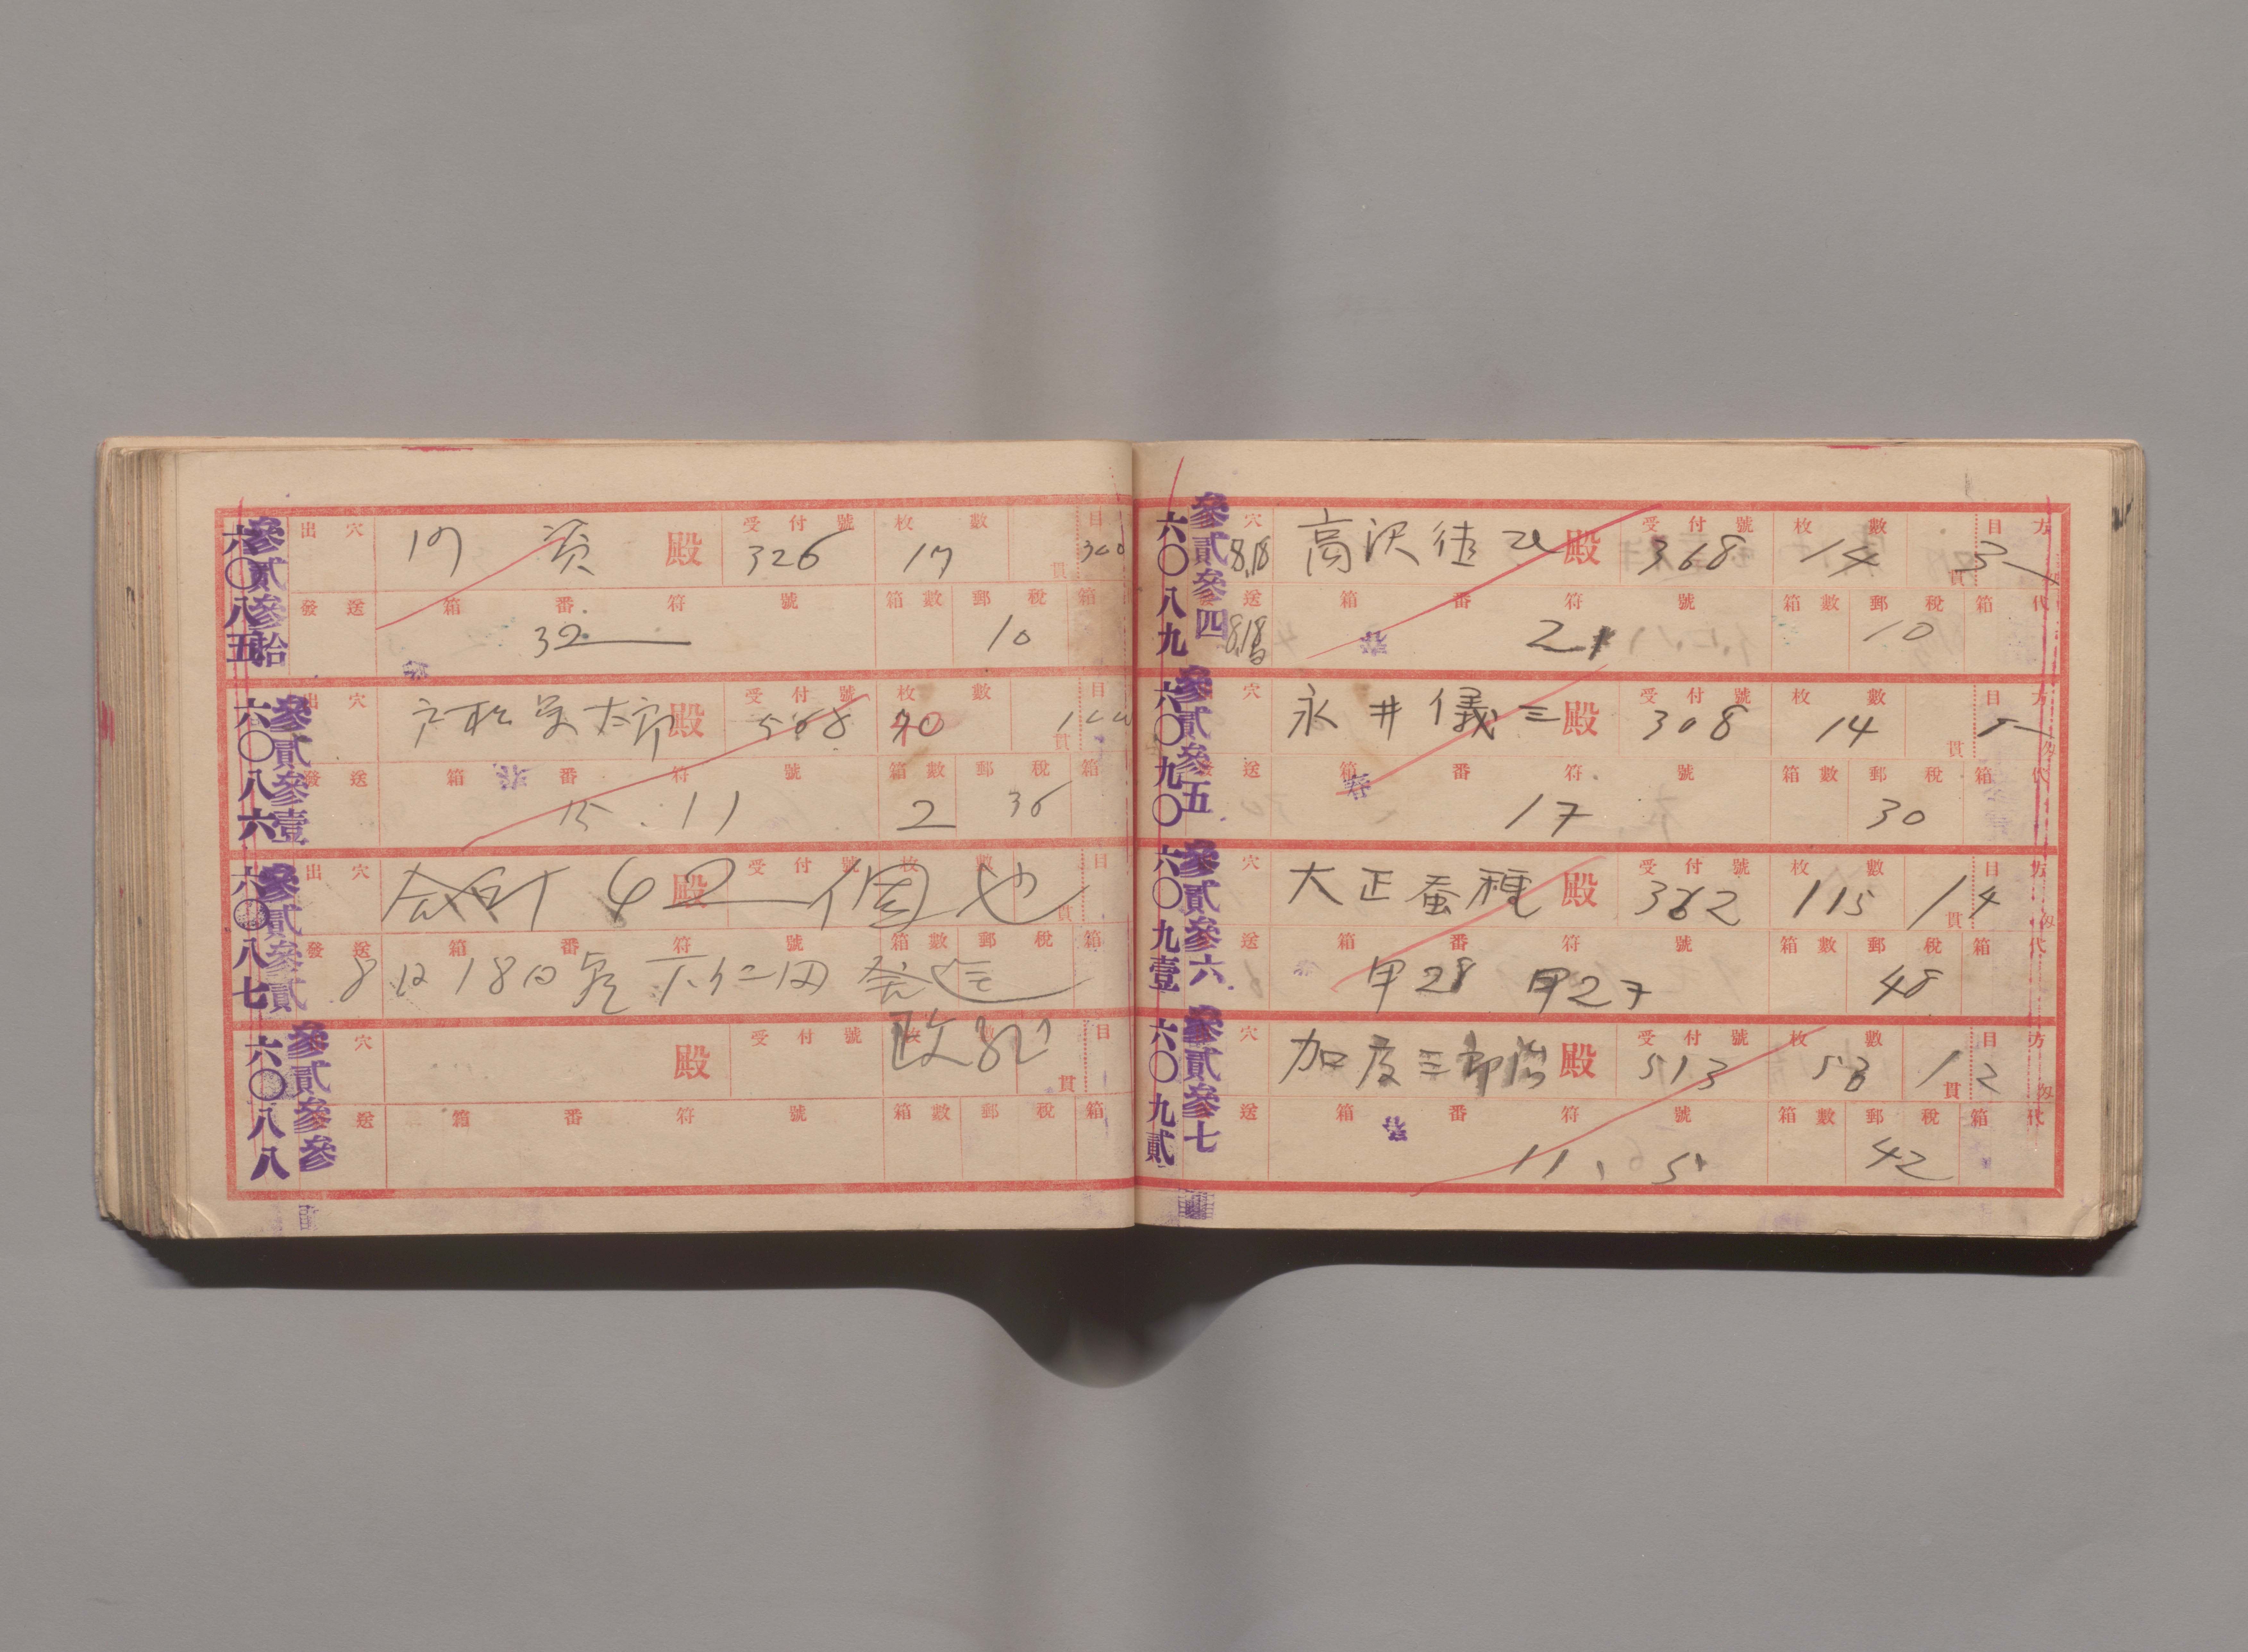 六〇八五
參貳參拾
出穴
殿
受付號 326
枚數 17
目
發送
箱番符號 32
箱數
郵税 10
箱
六〇八六
參貳參壹
出穴
太郎殿
受付號 568
枚數
貫
目
發送
箱番符號 15. 11
箱數 2
郵税 36
箱
六〇八七
參貳參貳
出穴
合計 42個也
殿
受付號
枚數
貫
目
發送
8月18日
箱番符號
箱數
郵税
箱
六〇八八
參貳參參
穴
殿
受付號
枚數
貫
目
送
箱番符號
箱數
郵税
箱
六〇八九
參貳參四
穴 8.18
高沢徳 殿
受付號 368
枚數 14
貫
目方 3
送 8.18
箱番符號 21
箱數
郵税 10
箱代
春
六〇九〇
參貳參五
穴
永井儀三殿
受付號 308
枚數 14
貫
目方
匁
送
箱番符號 17
箱數
郵税 30
箱代
春
六〇九壹
參貳參六
穴
大正蚕種殿
受付號 362
枚數 115
貫
目方 14
匁
送
箱番符號 甲28 甲27
箱數
郵税 48
箱代
六〇九貳
參貳參七
穴
加度三郎治殿
受付號 513
枚數 53
貫
目方 12
匁
送
箱番符號 11、5
箱數
郵税 42
箱代
春